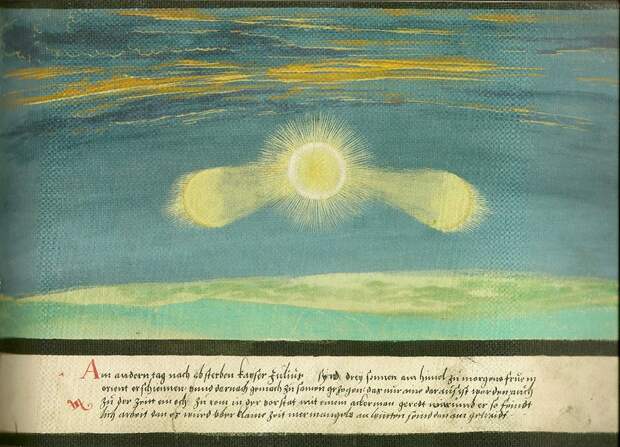 Am andern tag nach absterben kayser Julius synd drey sonnen am himel zu morgens frue in
orient erschinnen unnd darnach gemach zu samen gezogen das nur aine dar aus ist worden auch
zu der zeitt ein och zu rom in der vorstat mit einem ackerman geredt warumb er so
lich arbeit dan es wurd uber klaine zeit mer mangels an leutten dan